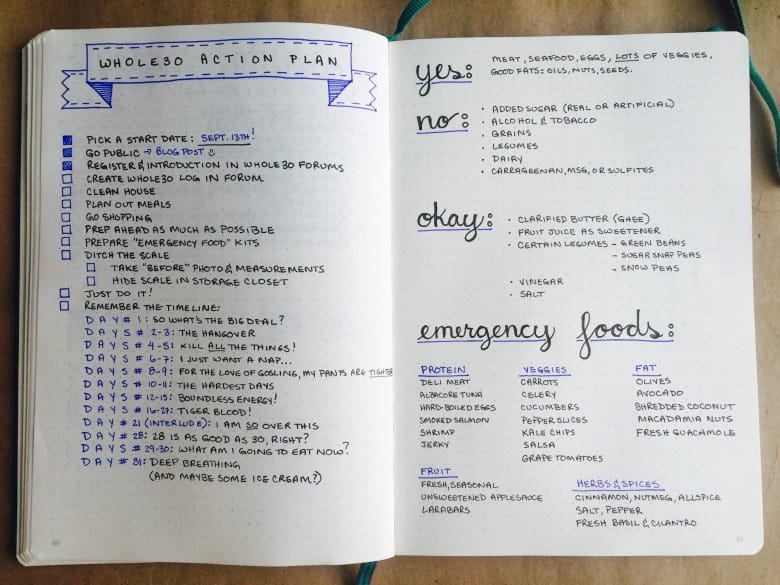 WHOLE30 ACTION PLAN
PICK A START DATE: SEPT. 13TH!
GO PUBLIC → BLOG POST
REGISTER & INTRODUCTION IN WHOLE30 FORUMS
CREATE WHOLE30 LOG IN FORUM
CLEAN HOUSE
PLAN OUT MEALS
GO SHOPPING
PREP AHEAD AS MUCH AS POSSIBLE
PREPARE "EMERGENCY FOOD" KITS
DITCH THE SCALE
TAKE "BEFORE" PHOTO & MEASUREMENTS
HIDE SCALE IN STORAGE CLOSET
JUST DO IT!
REMEMBER THE TIMELINE:
DAY # 1: SO WHAT'S THE BIG DEAL?
DAYS # 2-3: THE HANGOVER
DAYS # 4-5: KILL ALL THE THINGS!
DAYS # 6-7: I JUST WANT A NAP...
DAYS # 8-9: FOR THE LOVE OF GOSLING, MY PANTS ARE TIGHTER
DAYS # 10-11: THE HARDEST DAYS
DAYS # 12-15: BOUNDLESS ENERGY!
DAYS # 16-27: TIGER BLOOD!
DAY # 21 (INTERLUDE): I AM SO OVER THIS
DAY # 28: 28 IS AS GOOD AS 30, RIGHT?
DAYS # 29-30: WHAT AM I GOING TO EAT NOW?
DAY # 31: DEEP BREATHING
(AND MAYBE SOME ICE CREAM?)
60
yes: MEAT, SEAFOOD, EGGS, LOTS OF VEGGIES,
GOOD FATS: OILS, NUTS, SEEDS.
no: • ADDED SUGAR (REAL OR ARTIFICIAL)
• ALCOHOL & TOBACCO
• GRAINS
• LEGUMES
• DAIRY
• CARRAGEENAN, MSG, OR SULFITES
okay: • CLARIFIED BUTTER (GHEE)
• FRUIT JUICE AS SWEETENER
• CERTAIN LEGUMES - GREEN BEANS
- SUGAR SNAP PEAS
- SNOW PEAS
• VINEGAR
• SALT
emergency foods:
PROTEIN
DELI MEAT
ALBACORE TUNA
HARD-BOILED EGGS
SMOKED SALMON
SHRIMP
JERKY
VEGGIES
CARROTS
CELERY
CUCUMBERS
PEPPER SLICES
KALE CHIPS
SALSA
GRAPE TOMATOES
FAT
OLIVES
AVOCADO
SHREDDED COCONUT
MACADAMIA NUTS
FRESH GUACAMOLE
FRUIT
FRESH, SEASONAL
UNSWEETENED APPLESAUCE
LARABARS
HERBS & SPICES
CINNAMON, NUTMEG, ALLSPICE
SALT, PEPPER
FRESH BASIL & CILANTRO
61